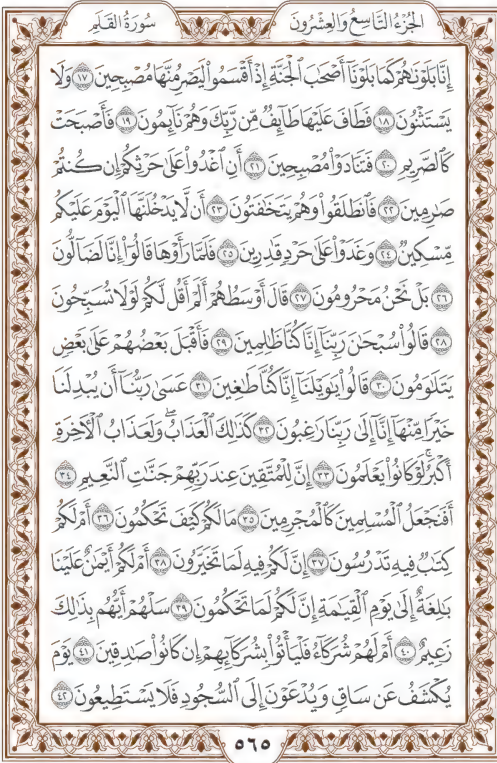 سُورَةُ القَلَمِ
الجُزْءُ التَّاسِعُ وَالعِشْرُونَ
إِنَّا بَلَوْنَٰهُمْ كَمَا بَلَوْنَآ أَصْحَٰبَ ٱلْجَنَّةِ إِذْ أَقْسَمُوا۟ لَيَصْرِمُنَّهَا مُصْبِحِينَ ١٧ وَلَا
يَسْتَثْنُونَ ١٨ فَطَافَ عَلَيْهَا طَآئِفٌ مِّن رَّبِّكَ وَهُمْ نَآئِمُونَ ١٩ فَأَصْبَحَتْ
كَٱلصَّرِيمِ ٢٠ فَتَنَادَوْا۟ مُصْبِحِينَ ٢١ أَنِ ٱغْدُوا۟ عَلَىٰ حَرْثِكُمْ إِن كُنتُمْ
صَٰرِمِينَ ٢٢ فَٱنطَلَقُوا۟ وَهُمْ يَتَخَٰفَتُونَ ٢٣ أَن لَّا يَدْخُلَنَّهَا ٱلْيَوْمَ عَلَيْكُم
مِّسْكِينٌ ٢٤ وَغَدَوْا۟ عَلَىٰ حَرْدٍ قَٰدِرِينَ ٢٥ فَلَمَّا رَأَوْهَا قَالُوٓا۟ إِنَّا لَضَآلُّونَ
٢٦ بَلْ نَحْنُ مَحْرُومُونَ ٢٧ قَالَ أَوْسَطُهُمْ أَلَمْ أَقُل لَّكُمْ لَوْلَا تُسَبِّحُونَ
٢٨ قَالُوا۟ سُبْحَٰنَ رَبِّنَآ إِنَّا كُنَّا ظَٰلِمِينَ ٢٩ فَأَقْبَلَ بَعْضُهُمْ عَلَىٰ بَعْضٍ
يَتَلَٰوَمُونَ ٣٠ قَالُوا۟ يَٰوَيْلَنَآ إِنَّا كُنَّا طَٰغِينَ ٣١ عَسَىٰ رَبُّنَآ أَن يُبْدِلَنَا
خَيْرًا مِّنْهَآ إِنَّآ إِلَىٰ رَبِّنَا رَٰغِبُونَ ٣٢ كَذَٰلِكَ ٱلْعَذَابُ ۖ وَلَعَذَابُ ٱلْءَاخِرَةِ
أَكْبَرُ ۚ لَوْ كَانُوا۟ يَعْلَمُونَ ٣٣ إِنَّ لِلْمُتَّقِينَ عِندَ رَبِّهِمْ جَنَّٰتِ ٱلنَّعِيمِ ٣٤
أَفَنَجْعَلُ ٱلْمُسْلِمِينَ كَٱلْمُجْرِمِينَ ٣٥ مَا لَكُمْ كَيْفَ تَحْكُمُونَ ٣٦ أَمْ لَكُمْ
كِتَٰبٌ فِيهِ تَدْرُسُونَ ٣٧ إِنَّ لَكُمْ فِيهِ لَمَا تَخَيَّرُونَ ٣٨ أَمْ لَكُمْ أَيْمَٰنٌ عَلَيْنَا
بَٰلِغَةٌ إِلَىٰ يَوْمِ ٱلْقِيَٰمَةِ ۙ إِنَّ لَكُمْ لَمَا تَحْكُمُونَ ٣٩ سَلْهُمْ أَيُّهُم بِذَٰلِكَ
زَعِيمٌ ٤٠ أَمْ لَهُمْ شُرَكَآءُ فَلْيَأْتُوا۟ بِشُرَكَآئِهِمْ إِن كَانُوا۟ صَٰدِقِينَ ٤١ يَوْمَ
يُكْشَفُ عَن سَاقٍ وَيُدْعَوْنَ إِلَى ٱلسُّجُودِ فَلَا يَسْتَطِيعُونَ ٤٢
٥٦٥